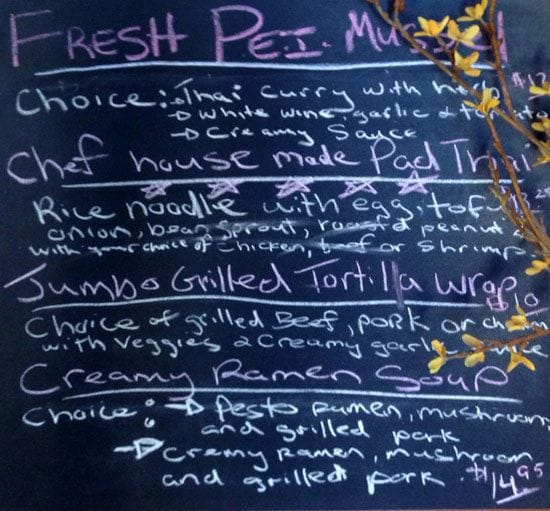 FRESH P.E.I. Mussel
$17
Choice: Thai curry with herb
→ White wine, garlic & tomato
→ Creamy Sauce
Chef house made Pad Thai
Rice noodle with egg, tofu
onion, bean sprout, roasted peanut &
with your choice of chicken, beef or shrimp
Jumbo Grilled Tortilla wrap
$10
Choice of grilled Beef, pork or
with veggies & Creamy
Creamy Ramen Soup
Choice: → Pesto ramen, mushroom
and grilled pork
→ Cremy Ramen, mushroom
and grilled pork. $14.95